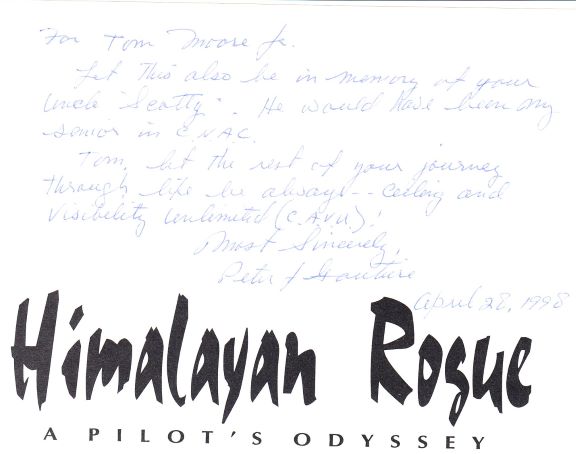 For Tom Moore Jr.
Let this also be in memory of your
Uncle "Scotty". He would have been my
senior in CNAC.
Tom, let the rest of your journey
through life be always -- ceiling and
visibility unlimited (C.A.V.U.)!
Most Sincerely,
Peter J Goutiere
April 28, 1998
Himalayan Rogue
A PILOT'S ODYSSEY